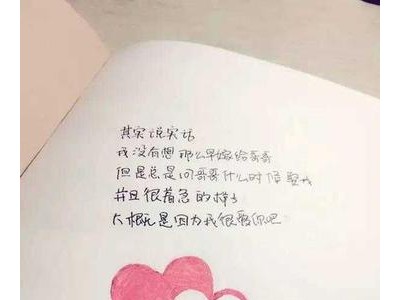 其实说实话
我没有想那么早嫁给哥哥
但是总是问哥哥什么时候娶我
并且很着急的样子
大概是因为我很爱你吧